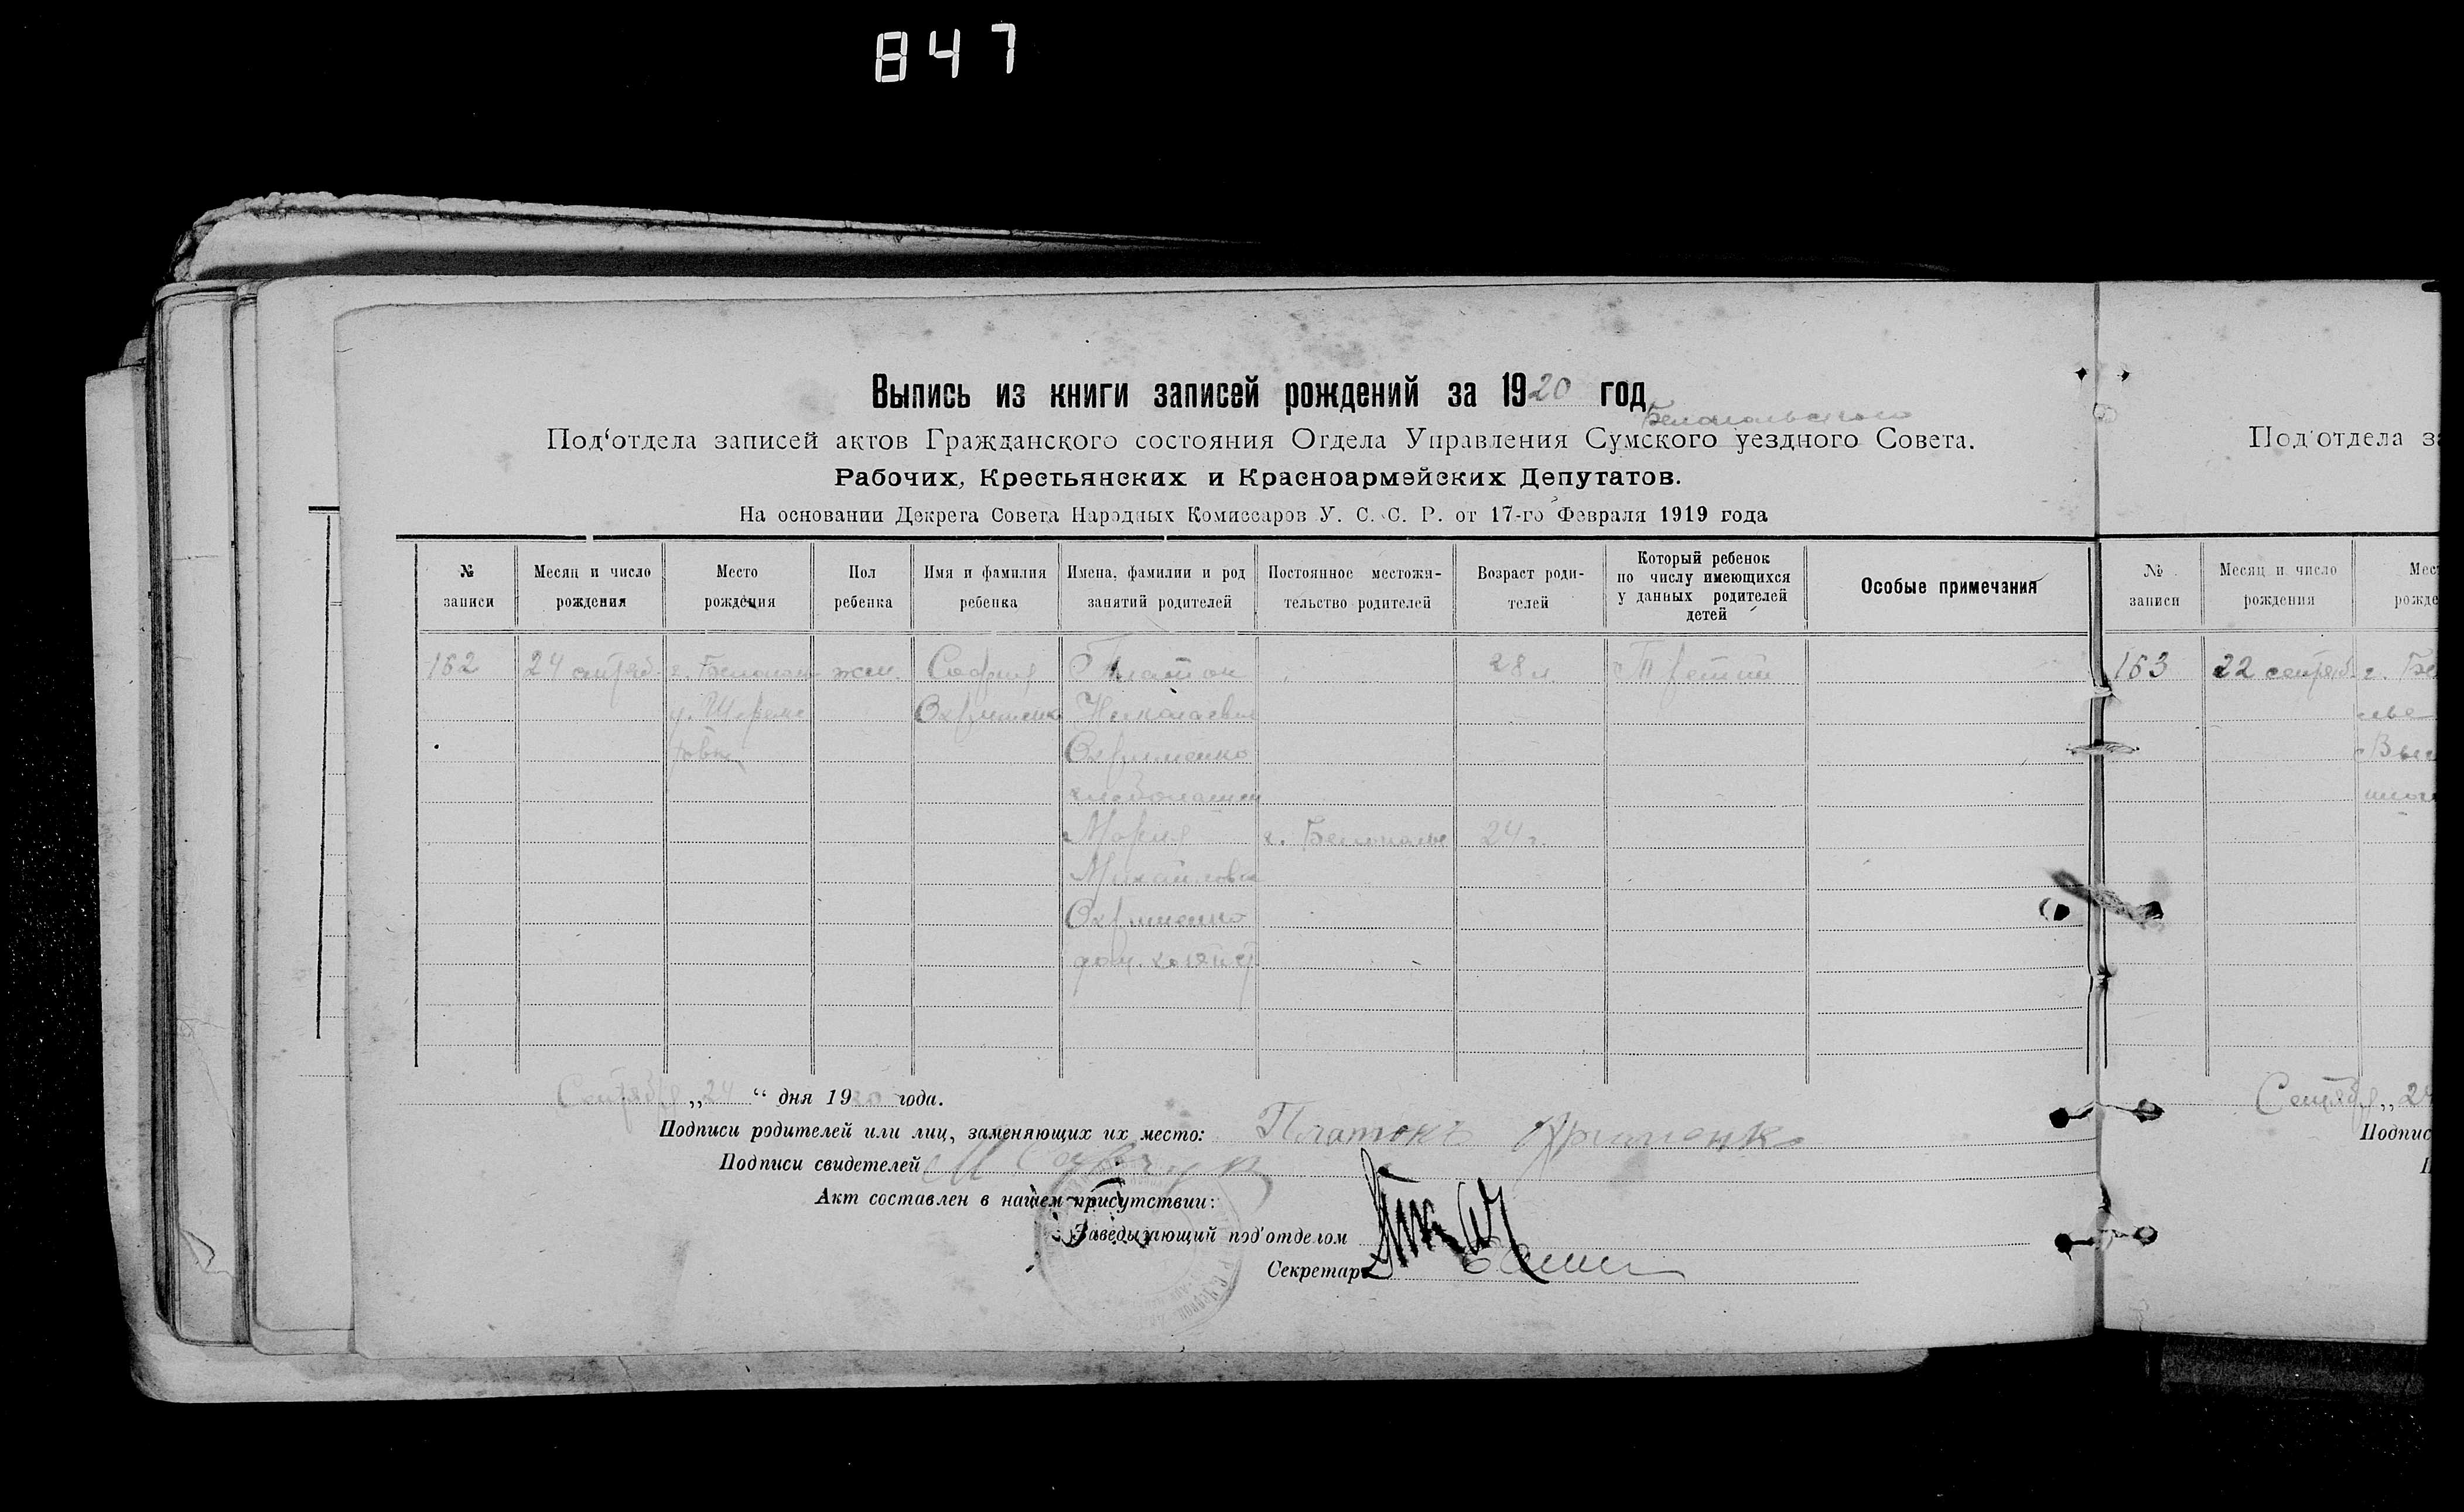 847
Выпись из книги записей рождений за 1920 год
Белопольского
Под‘отдела записей актов Гражданского состояния Отдела Управления Сумского уездного Совета.
Рабочих, Крестьянских и Красноармейских Депутатов.
На основании Декрета Совета Народных Комиссаров У. С. С. Р. от 17-го Февраля 1919 года
№ записи
Месяц и число рождения
Место рождения
Пол ребенка
Имя и фамилия ребенка
Имена, фамилии и род занятий родителей
Постоянное местожительство родителей
Возраст родителей
Который ребенок по числу имеющихся у данных родителей детей
Особые примечания
162
24 сентяб.
г. Белополь
жен.
София
Платон
28 л
Третий
Охрименко
Николаевич
Охрименко
хлебопашец
Мария
г. Белополье
24 г.
Михайловна
Охрименко
дом. хозяйст
Сентября „24“ дня 1920 года.
Подписи родителей или лиц, заменяющих их место: Платонъ Охрименко
Подписи свидетелей
Акт составлен в нашем присутствии:
Заведывающий под‘отделом
Секретарь
Под‘отдела
№ записи
Месяц и число рождения
163
22 сентяб.
г.
Сентября „24